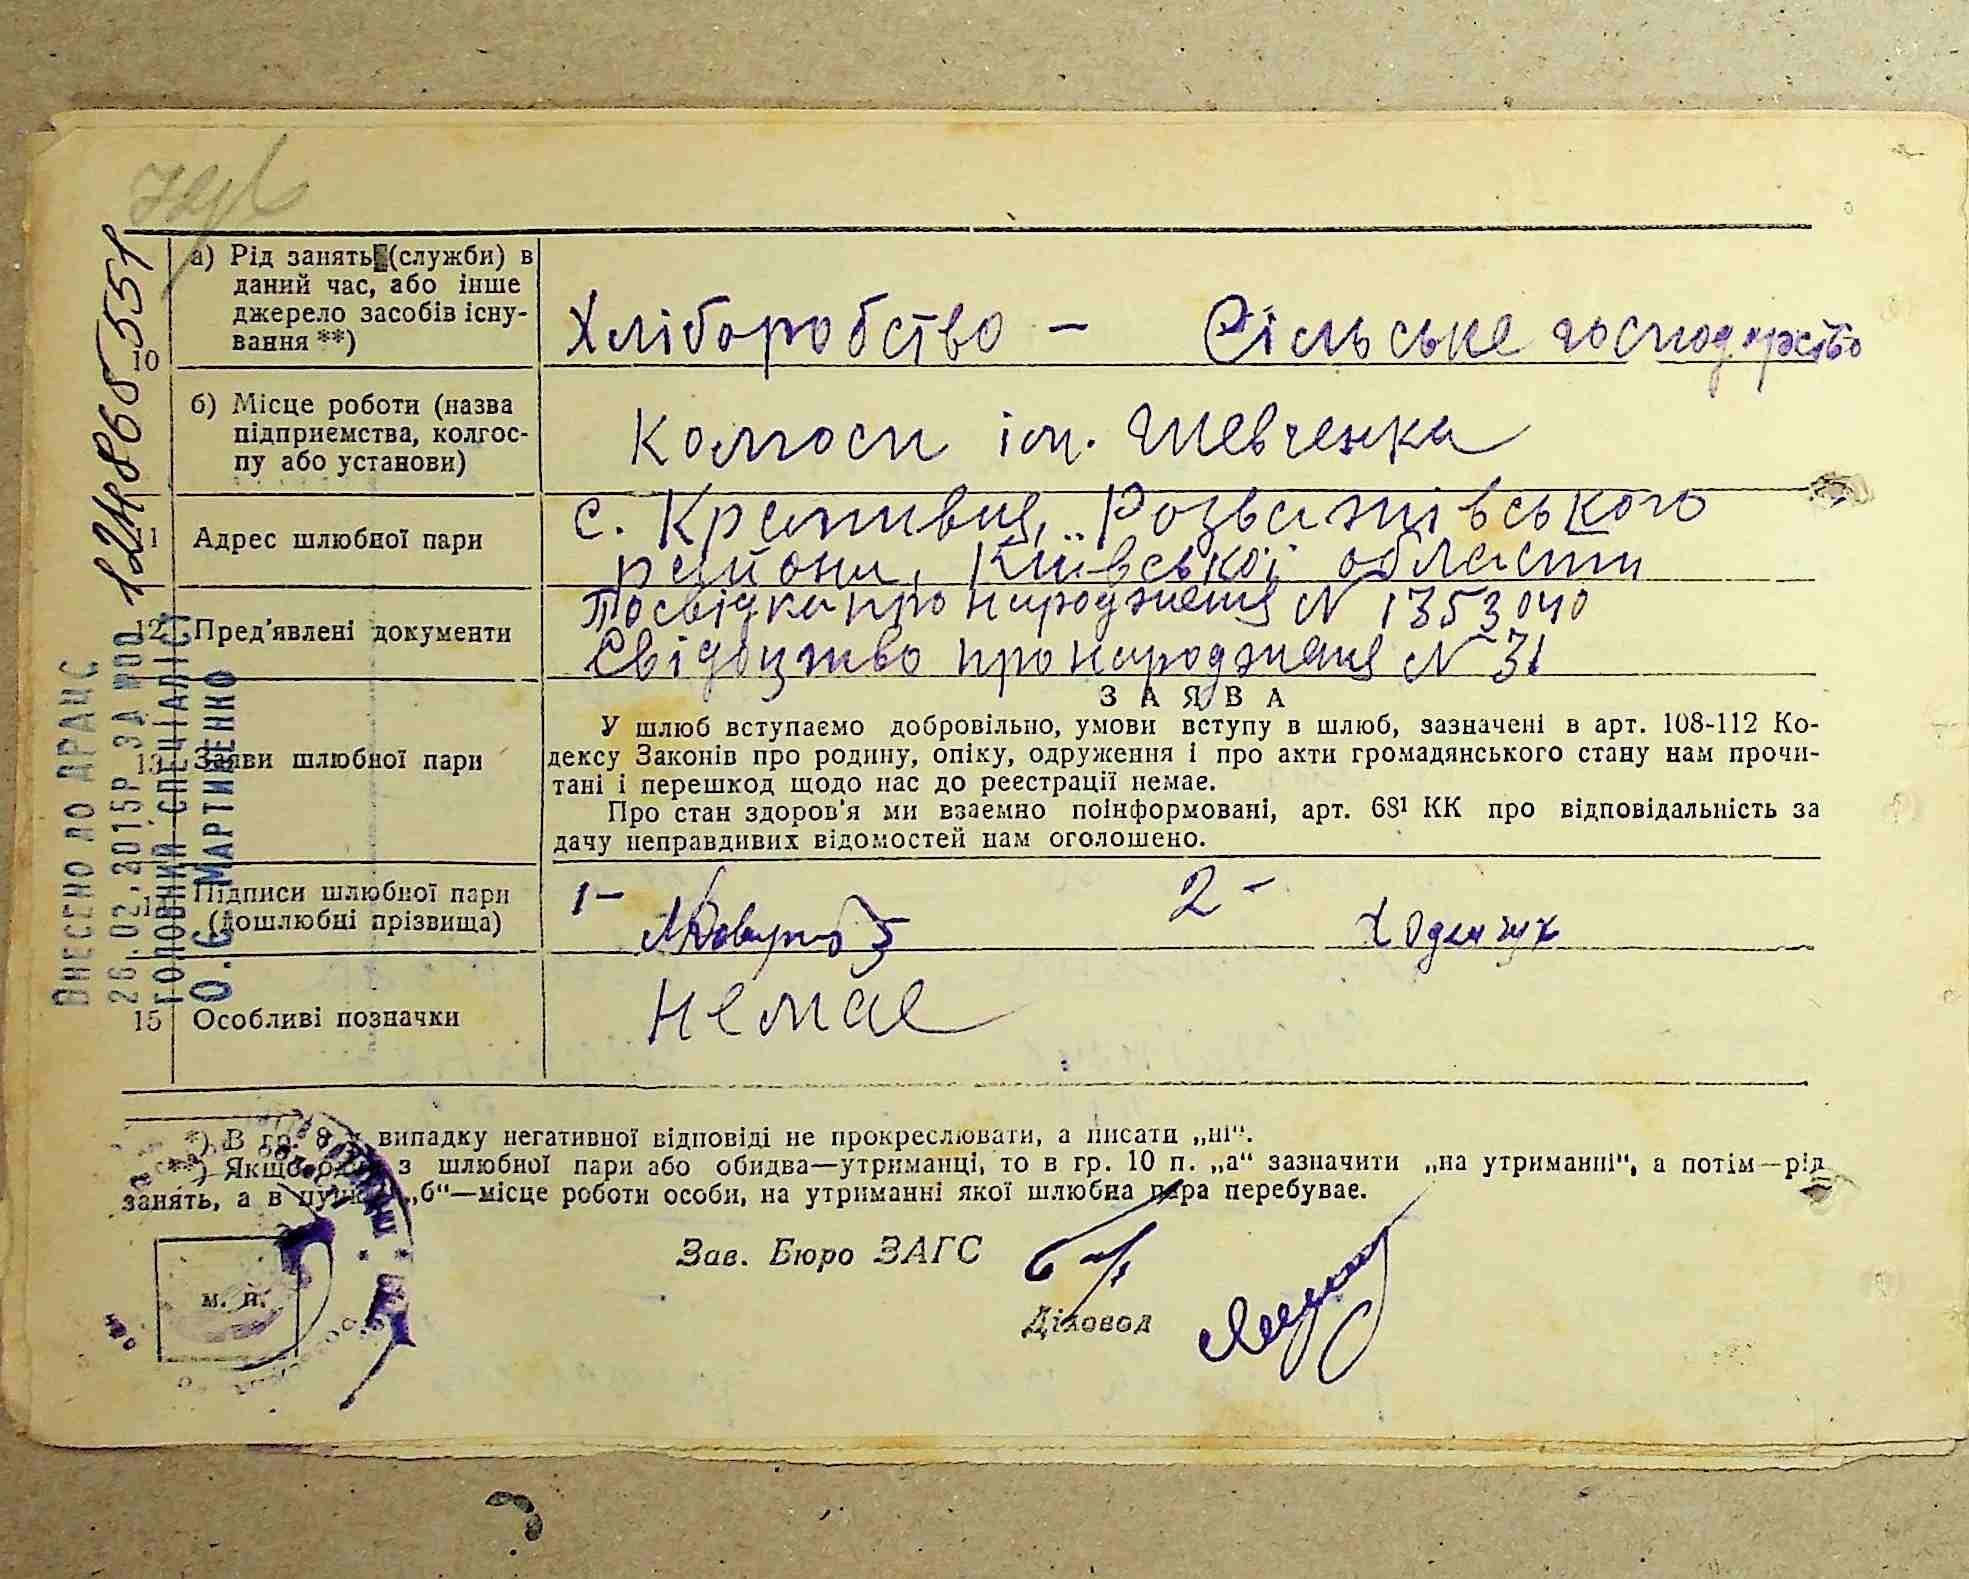 а) Рід занять (служби) в
даний час, або інше
джерело засобів існу-
вання **)
10
Хліборобство - Сільське господарство
б) Місце роботи (назва
підприємства, колгос-
пу або установи)
Колгосп ім. Шевченка
11
Адрес шлюбної пари
с. Кропивня, Розважівського
району, Київської области
12
Пред'явлені документи
Посвідка про народження N 1353040
Свідоцтво про народження N 31
13
Заяви шлюбної пари
ЗАЯВА
У шлюб вступаємо добровільно, умови вступу в шлюб, зазначені в арт. 108-112 Ко-
дексу Законів про родину, опіку, одруження і про акти громадянського стану нам прочи-
тані і перешкод щодо нас до реєстрації немає.
Про стан здоров'я ми взаємно поінформовані, арт. 68¹ КК про відповідальність за
дачу неправдивих відомостей нам оголошено.
Підписи шлюбної пари
(дошлюбні прізвища)
1- 2- Ходенчук
15
Особливі позначки
Немає
*) В гр. 8 у випадку негативної відповіді не прокреслювати, а писати „ні“.
**) Якщо один з шлюбної пари або обидва—утриманці, то в гр. 10 п. „а“ зазначити „на утриманні“, а потім—рід
занять, а в пункті „б“—місце роботи особи, на утриманні якої шлюбна пара перебуває.
Зав. Бюро ЗАГС
Діловод
м. п.
ВНЕСЕНО ДО ДРАЦС
26.02.2015Р ЗА №00 12486865551
ГОЛОВНИЙ СПЕЦІАЛІСТ
О. Є. МАРТИНЕНКО